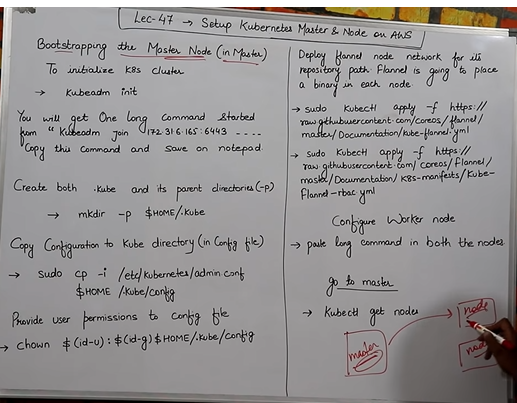 Lec-47 → Setup Kubernetes Master & Node on AWS
Bootstrapping the Master Node (in Master)
To initialize K8s cluster
→ Kubeadm init
You will get One long Command started
from "Kubeadm join 172.31.6.165:6443 ----
"Copy this command and save on notepad.
Create both .Kube and its parent directories (-p)
→ mkdir -p $HOME/.Kube
Copy Configuration to Kube directory (in Config file)
→ Sudo cp -i /etc/Kubernetes/admin.conf
$HOME /.Kube/config
Provide user permissions to Config file
→ chown $(id-u) : $(id-g) $HOME/.Kube/config
Deploy flannel node network for its
repository path. Flannel is going to place
a binary in each node.
→ sudo Kubectl apply -f https://
raw.githubusercontent.com/coreos/flannel/
master/Documentation/Kube-flannel.yml
→ sudo Kubectl apply -f https://
raw.githubusercontent.com/coreos/flannel/
master/Documentation/K8s-manifests/Kube-
Flannel-rbac.yml
Configure Worker node
→ paste long command in both the nodes
go to master
→ Kubectl get nodes
node
master
node